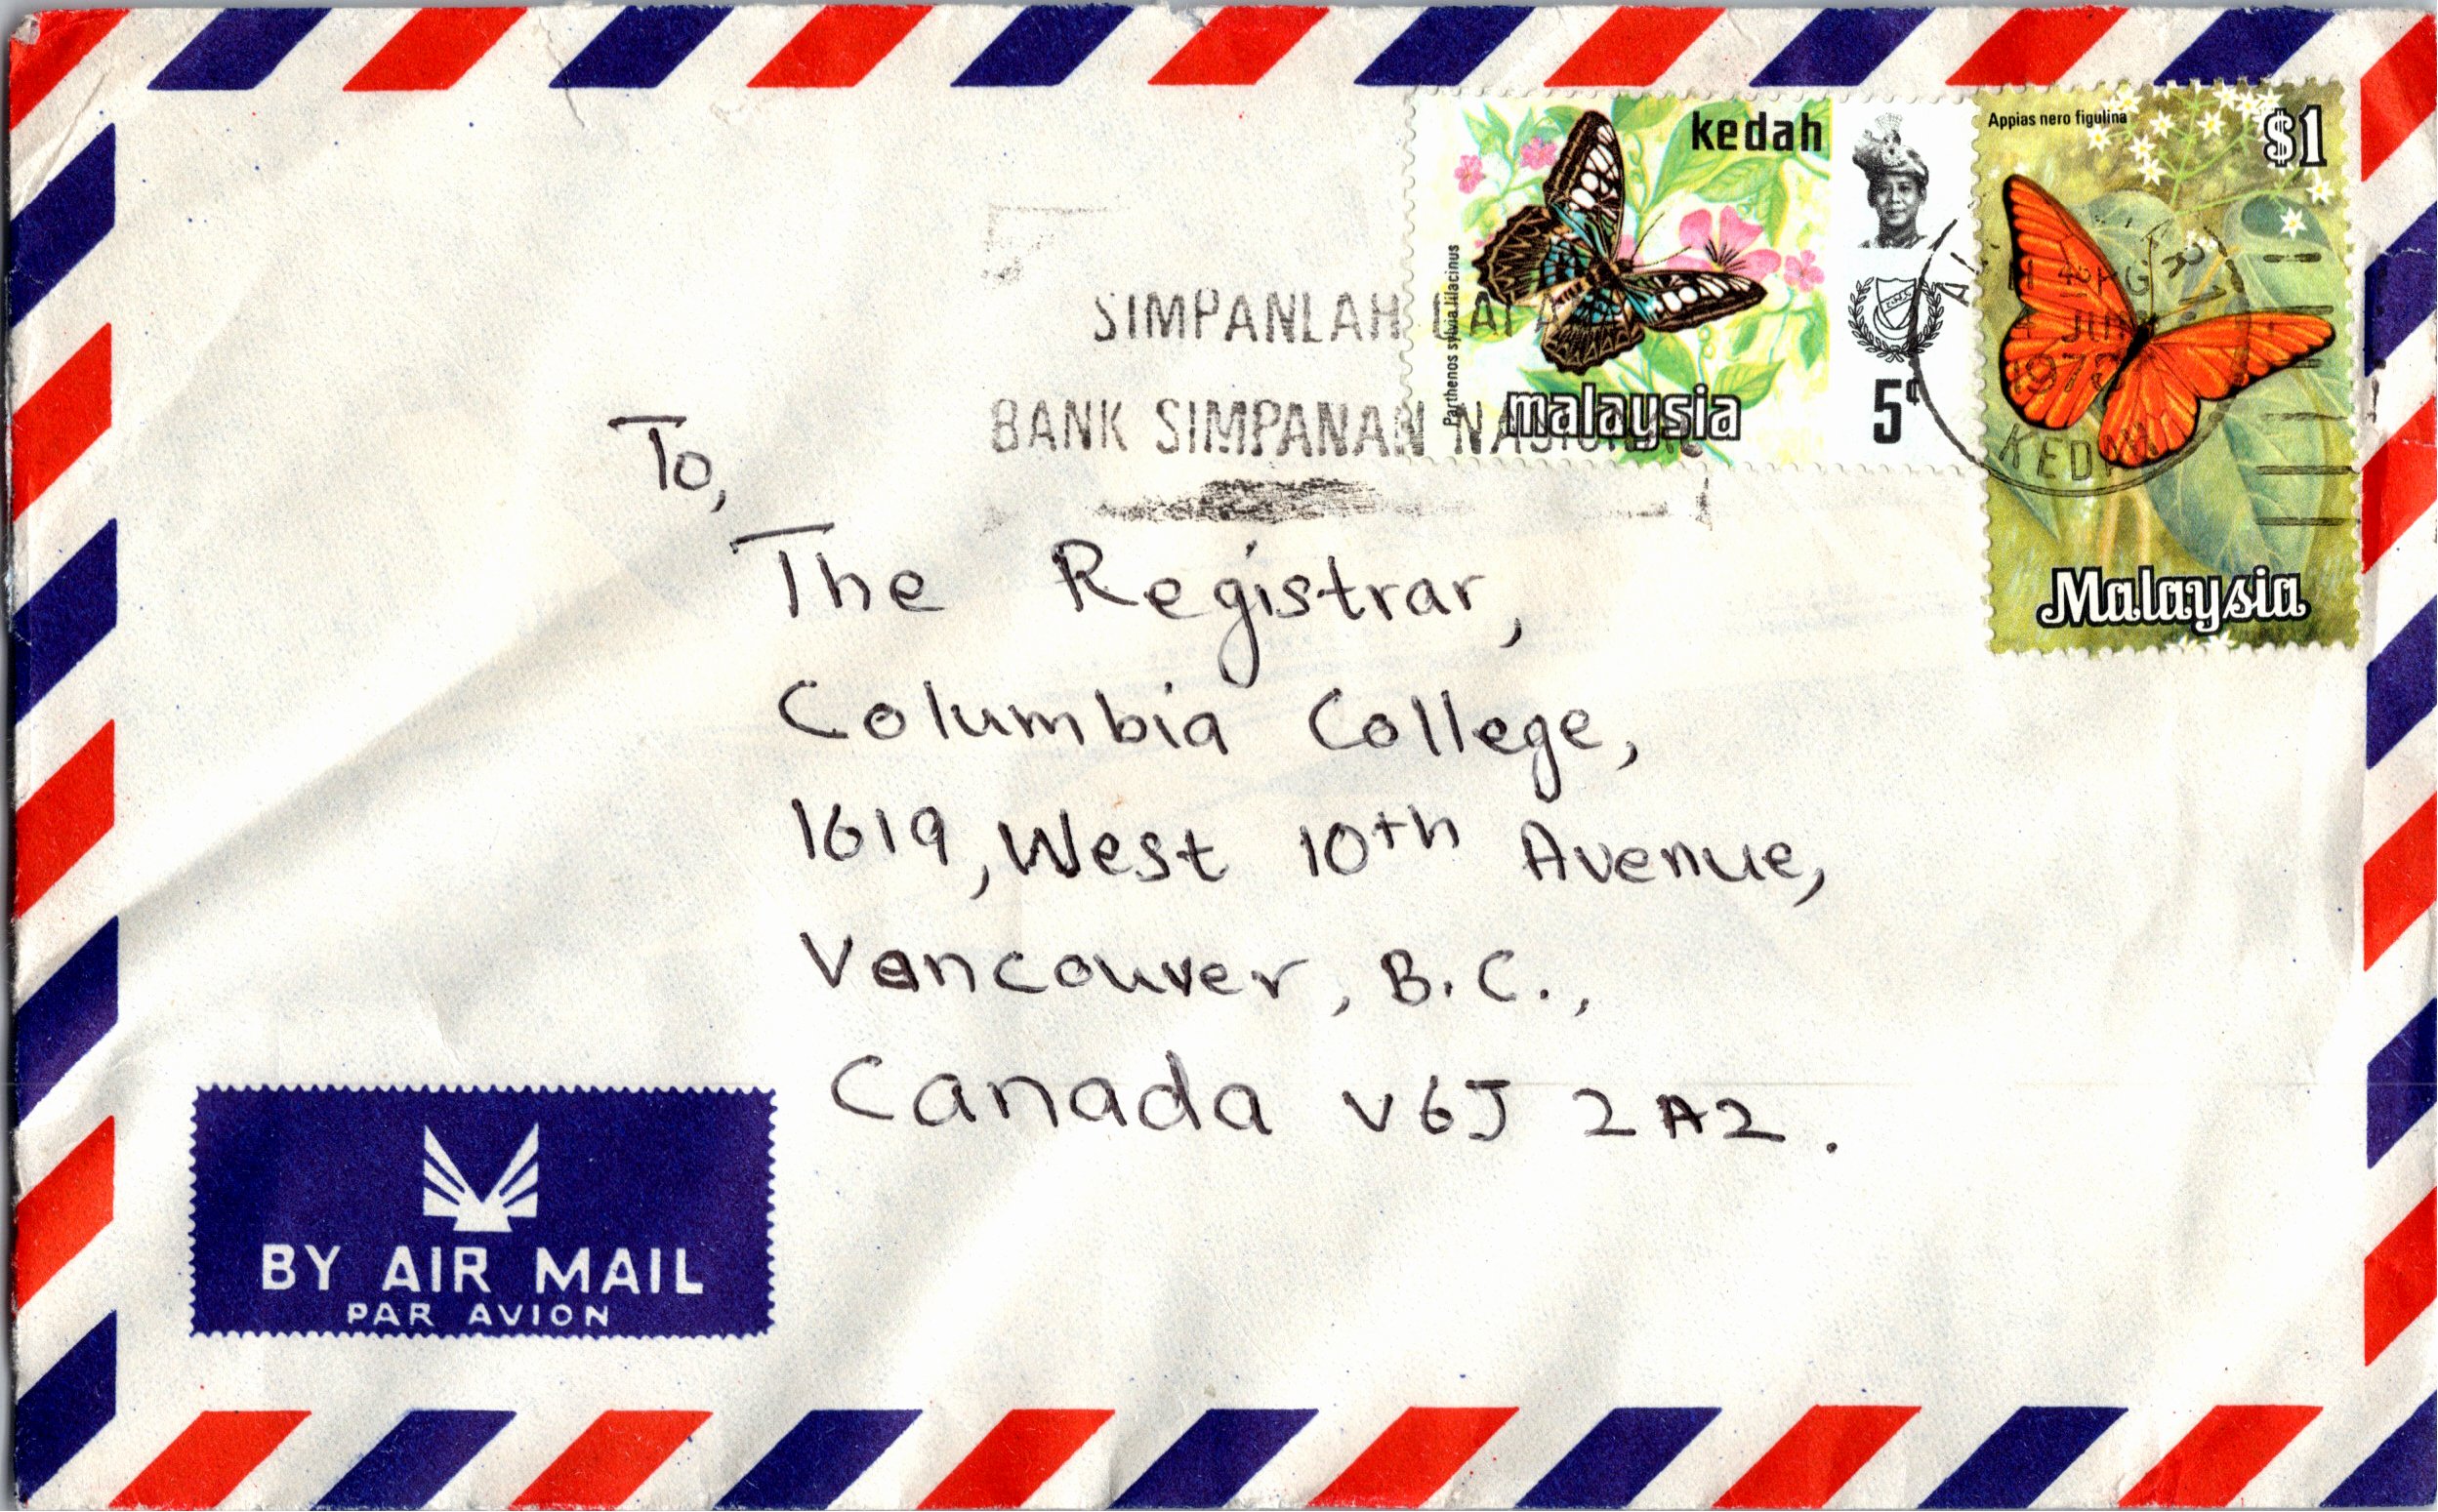 kedah
Parthenos sylvia lilacinus
malaysia
5¢
Appias nero figulina
$1
Malaysia
SIMPANLAH
BANK SIMPANAN NASIONAL
JUN
KEDAH
To,
The Registrar,
Columbia College,
1619, West 10th Avenue,
Vancouver, B.C.,
Canada V6J 2A2.
BY AIR MAIL
PAR AVION